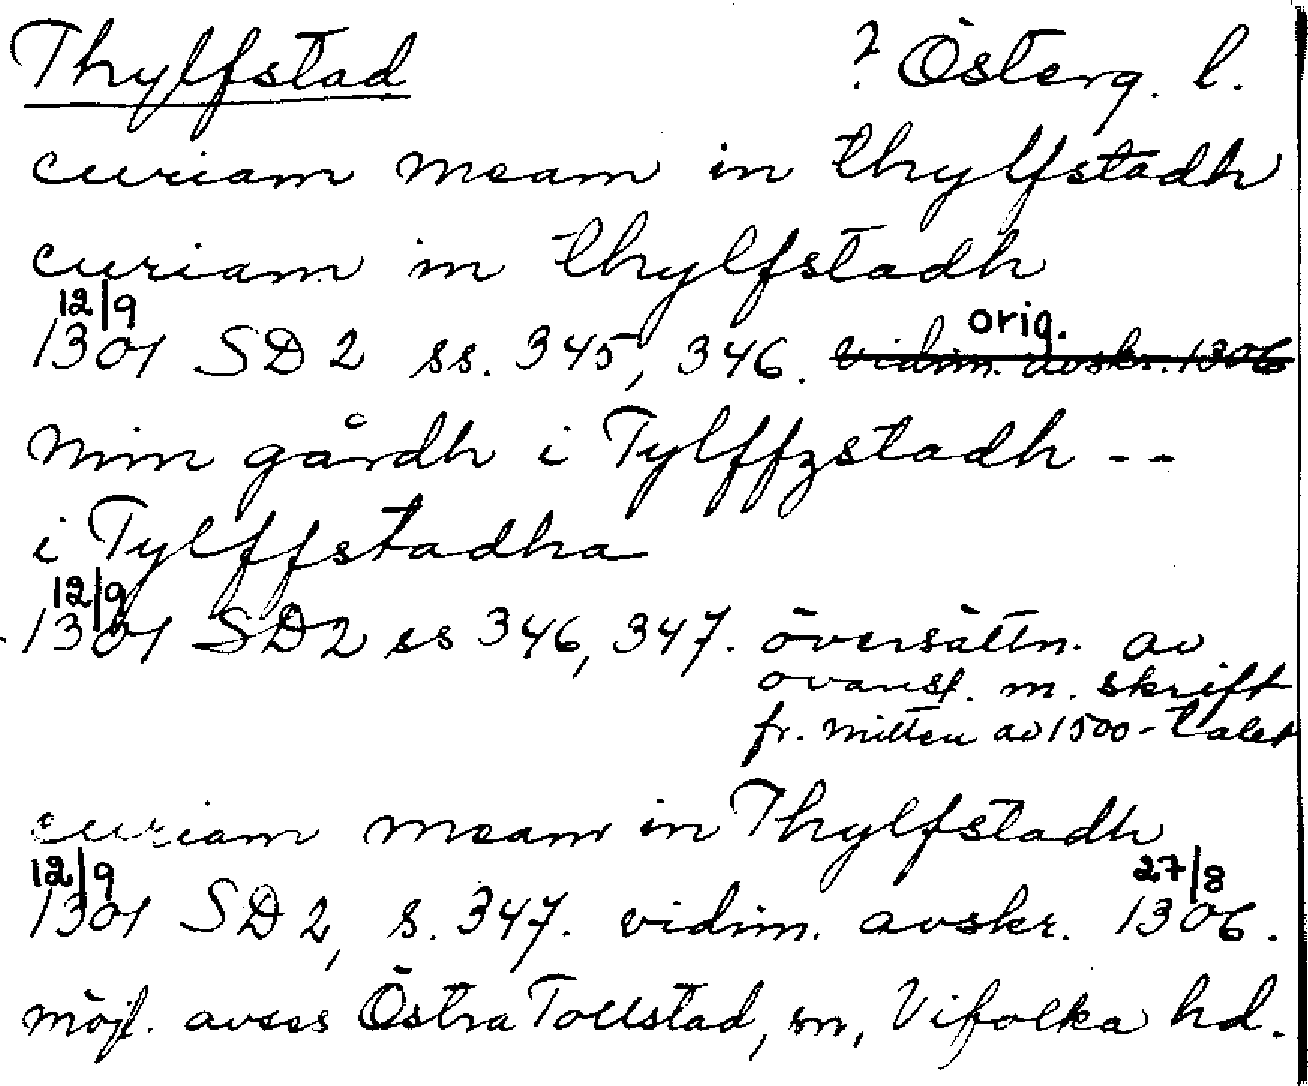 Thylfstad ? Österg. l.
curiam meam in thylfstadh
curiam in thylfstadh
12/9 orig.
1301 SD 2 ss. 345, 346. vidim. avskr. 1306
min gårdh i Tylffzstadh --
i Tylffstadha
12/9
1301 SD 2 ss 346, 347. översättn. av
ovanst. m. skrift
fr. mitten av 1500-talet
curiam meam in Thylfstadh
12/9 27/8
1301 SD 2, s. 347. vidim. avskr. 1306.
möjl. avses Östra Tollstad, sn, Vifolka hd.